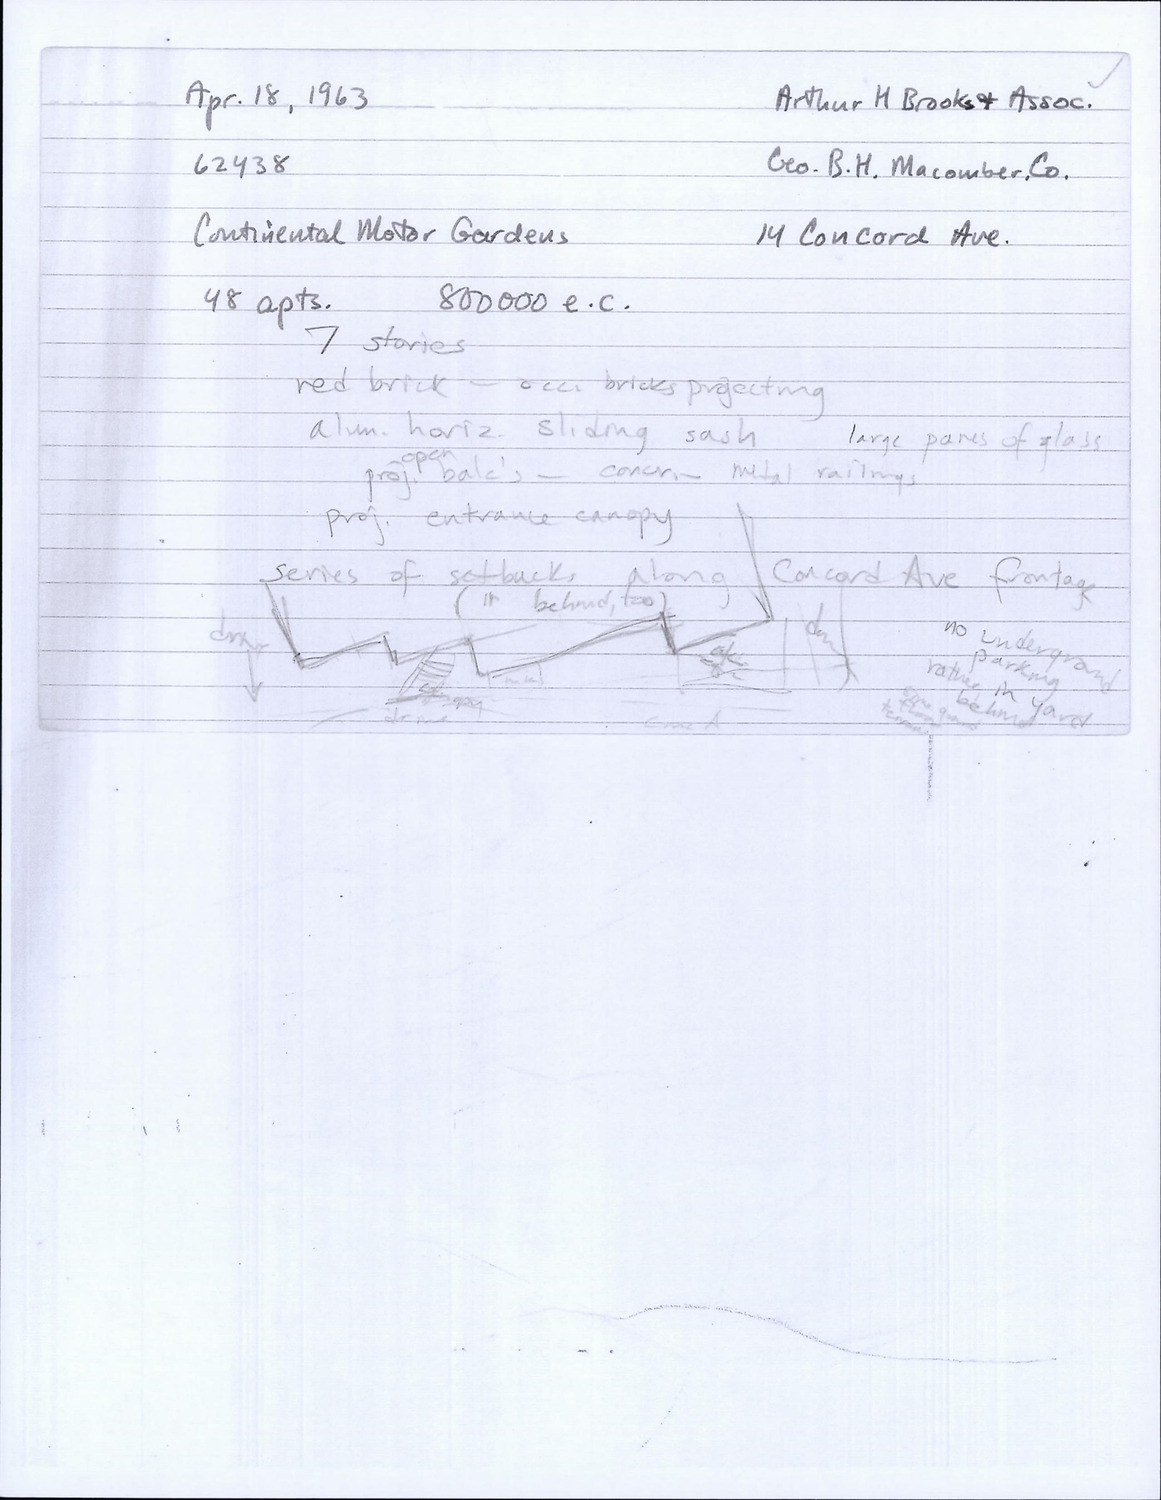 Apr. 18, 1963 Arthur H Brooks & Assoc.
62438 Geo. B.H. Macomber, Co.
Continental Motor Gardens 14 Concord Ave.
48 apts. 800000 e.c.
7 stories
red brick — occ. bricks projecting
alum. horiz. sliding sash large panes of glass
open
proj. balc's — concr. — metal railings
proj. entrance canopy
series of setbacks along Concord Ave frontage
(behind, too)
no underground
parking
rather in yard
behind
canopy